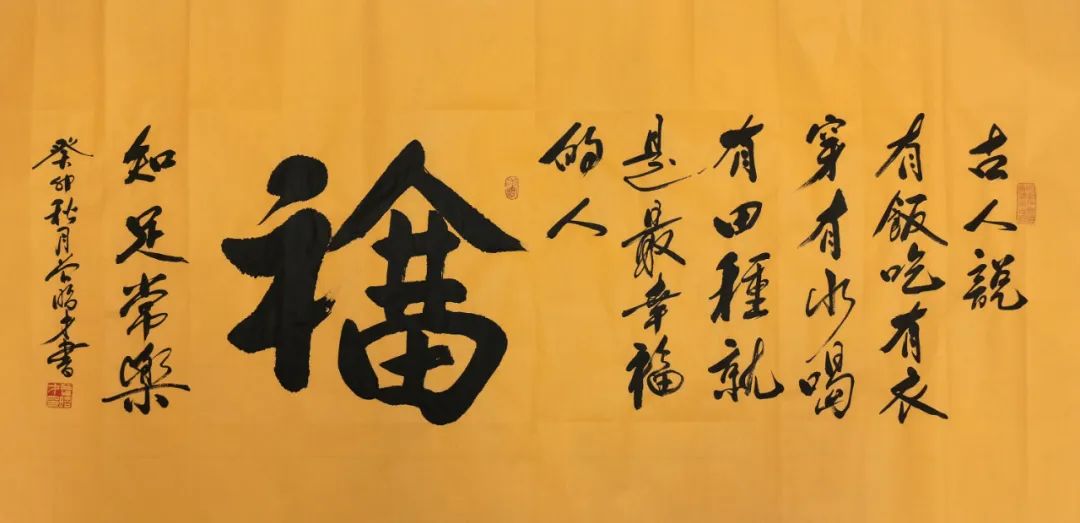 古人說
有飯吃有衣
穿有水喝
有田種就
是最幸福
的人
福
知足常樂
癸卯秋月